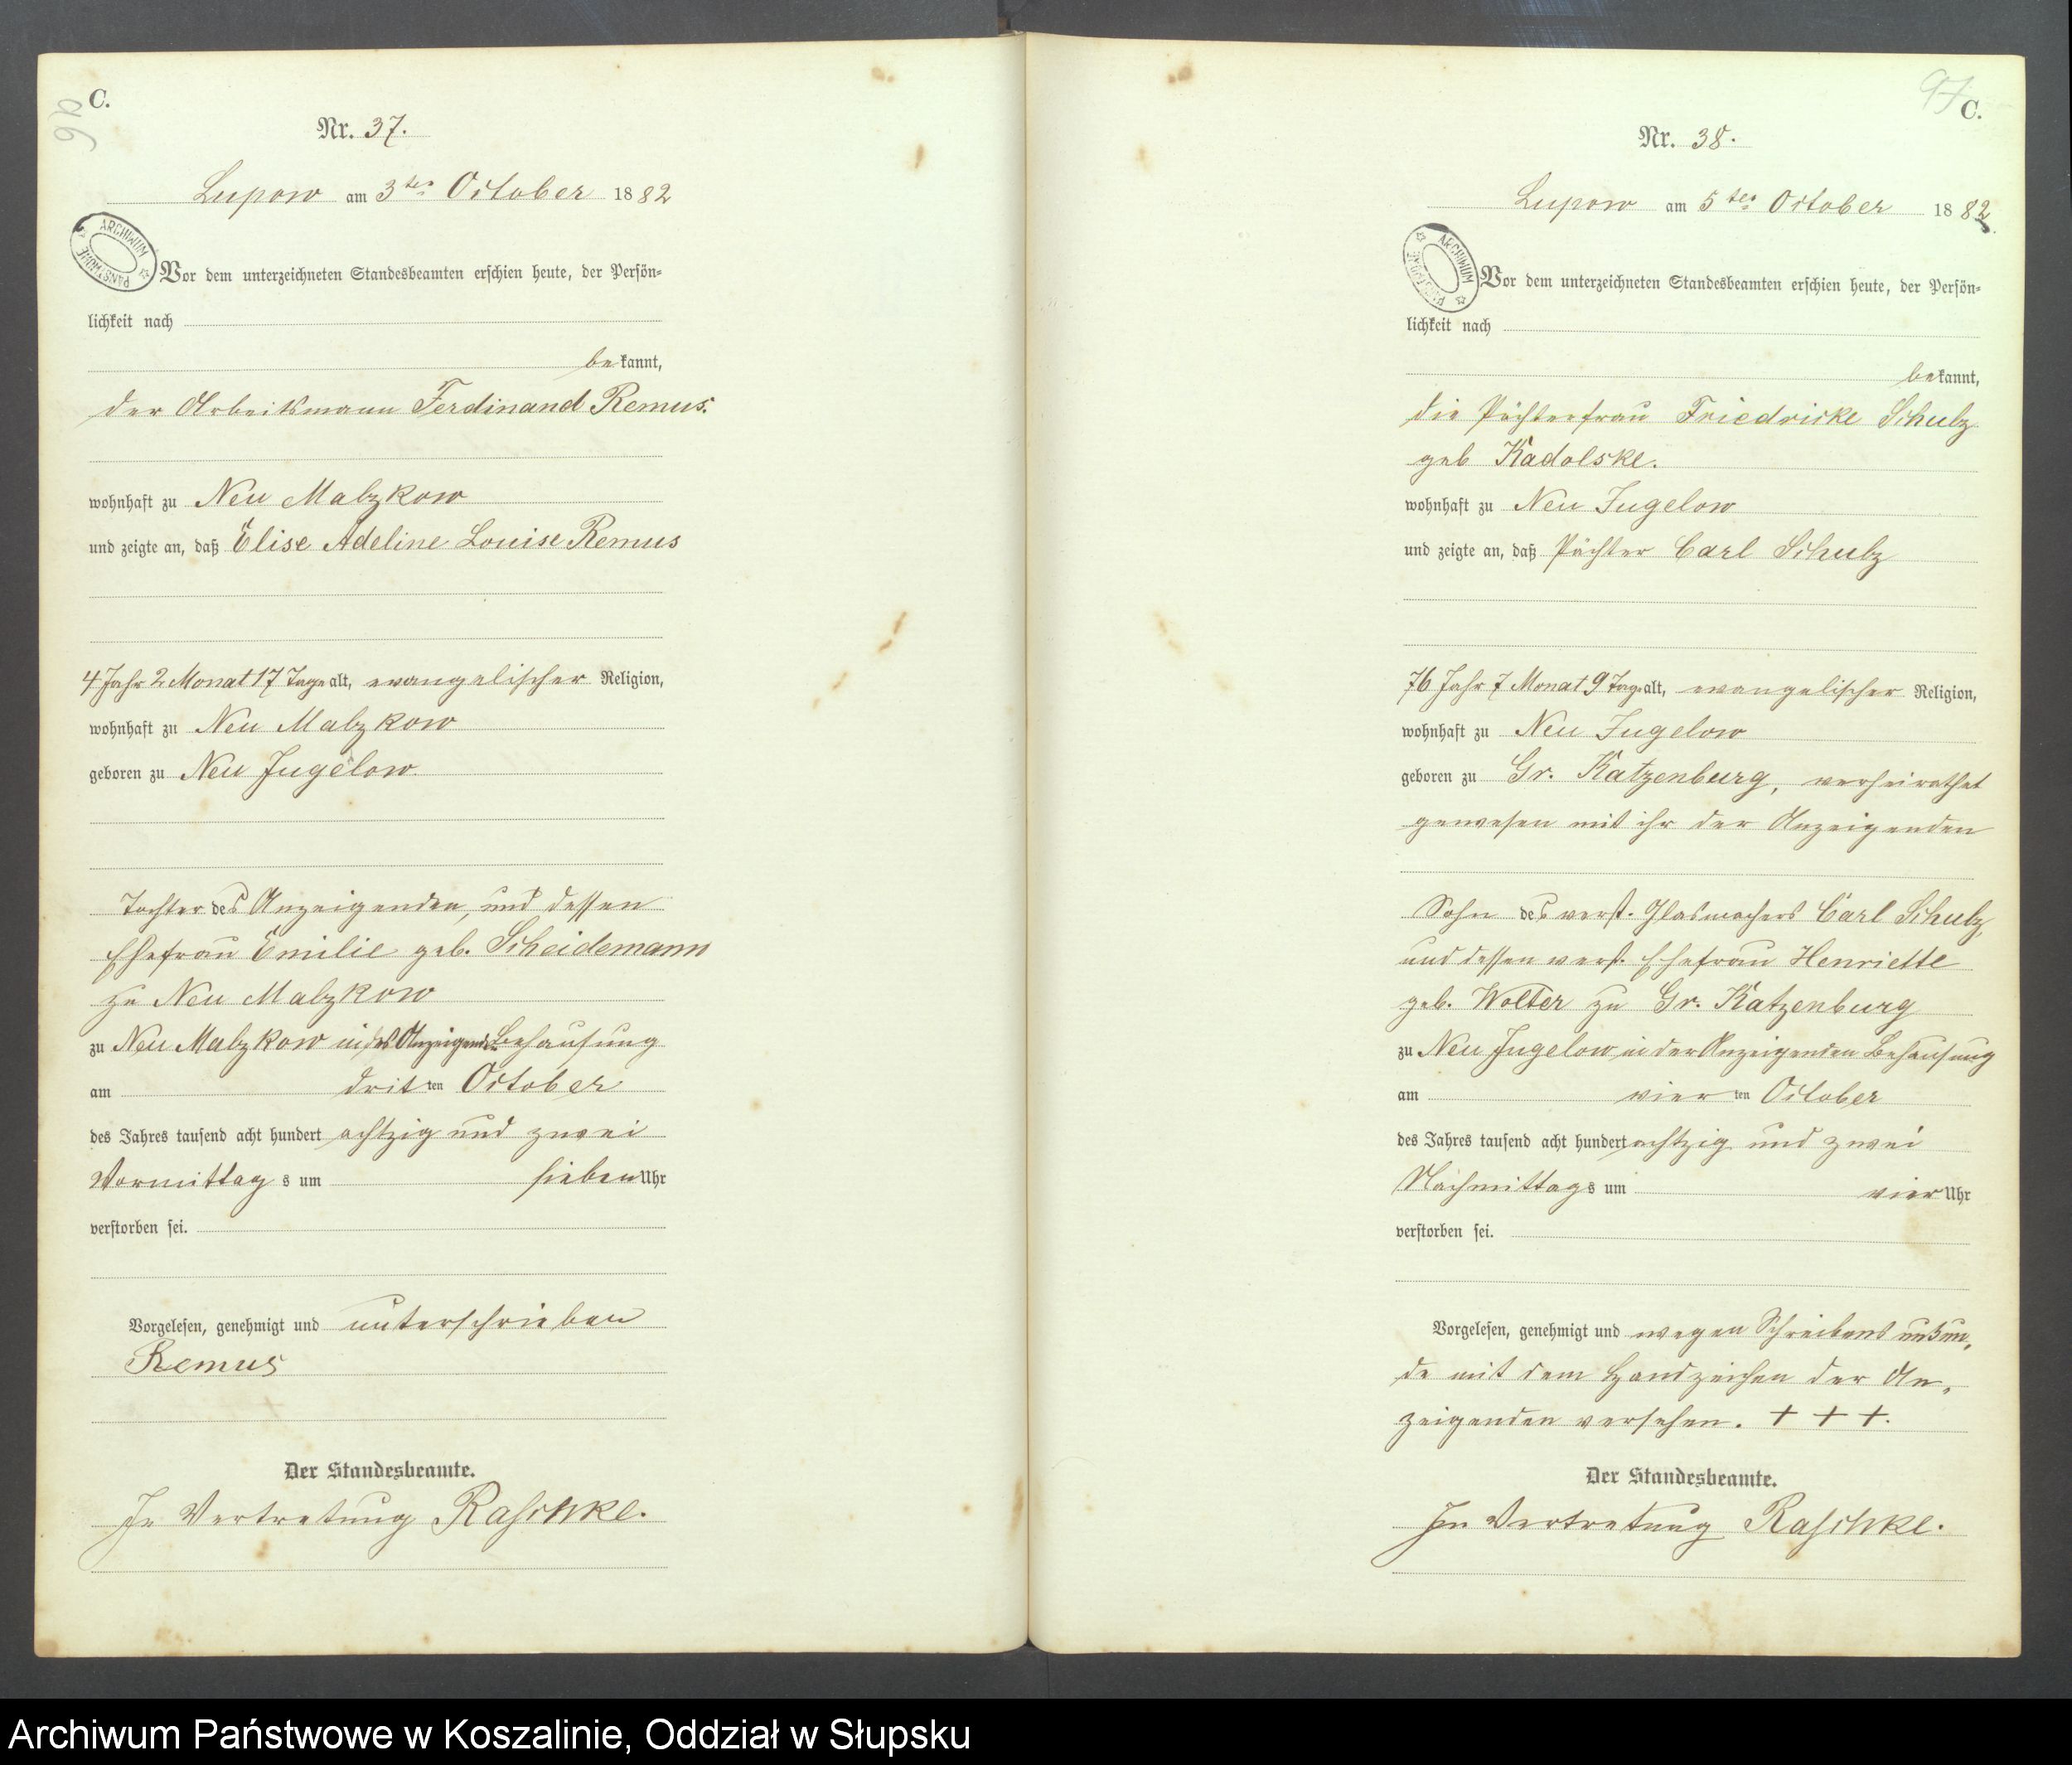 96
C.
Nr. 37.
Lupow am 3ten October 1882
ARCHIWUM PAŃSTWOWE
Vor dem unterzeichneten Standesbeamten erschien heute, der Persön-
lichkeit nach
bekannt,
der Arbeitsmann Ferdinand Remus.
wohnhaft zu Neu Malzkow
und zeigte an, daß Elise Adeline Louise Remus
4 Jahr 2 Monat 17 Tage alt, evangelischer Religion,
wohnhaft zu Neu Malzkow
geboren zu Neu Jugelow
Tochter des Anzeigenden, und dessen
Ehefrau Emilie geb. Scheidemann
zu Neu Malzkow
zu Neu Malzkow in des Anzeigenden Behausung
am dritten October
des Jahres tausend acht hundert achtzig und zwei
Vormittags um sieben Uhr
verstorben sei.
Vorgelesen, genehmigt und unterschrieben
Remus
Der Standesbeamte.
In Vertretung Raschke.
97
C.
Nr. 38.
Lupow am 5ten October 1882
ARCHIWUM PAŃSTWOWE
Vor dem unterzeichneten Standesbeamten erschien heute, der Persön-
lichkeit nach
bekannt,
die Pächterfrau Friedricke Schulz
geb Kadolske.
wohnhaft zu Neu Jugelow
und zeigte an, daß Pächter Carl Schulz
76 Jahr 7 Monat 9 Tage alt, evangelischer Religion,
wohnhaft zu Neu Jugelow
geboren zu Gr. Katzenburg, verheirathet
gewesen mit ihr der Anzeigenden
Sohn des verst. Glasmachers Carl Schulz,
und dessen verst. Ehefrau Henriette
geb. Wolter zu Gr. Katzenburg
zu Neu Jugelow in der Anzeigenden Behausung
am vierten October
des Jahres tausend acht hundert achtzig und zwei
Nachmittags um vier Uhr
verstorben sei.
Vorgelesen, genehmigt und wegen Schreibens unkun-
de mit dem Handzeichen der An-
zeigenden versehen. + + +.
Der Standesbeamte.
In Vertretung Raschke.
Archiwum Państwowe w Koszalinie, Oddział w Słupsku